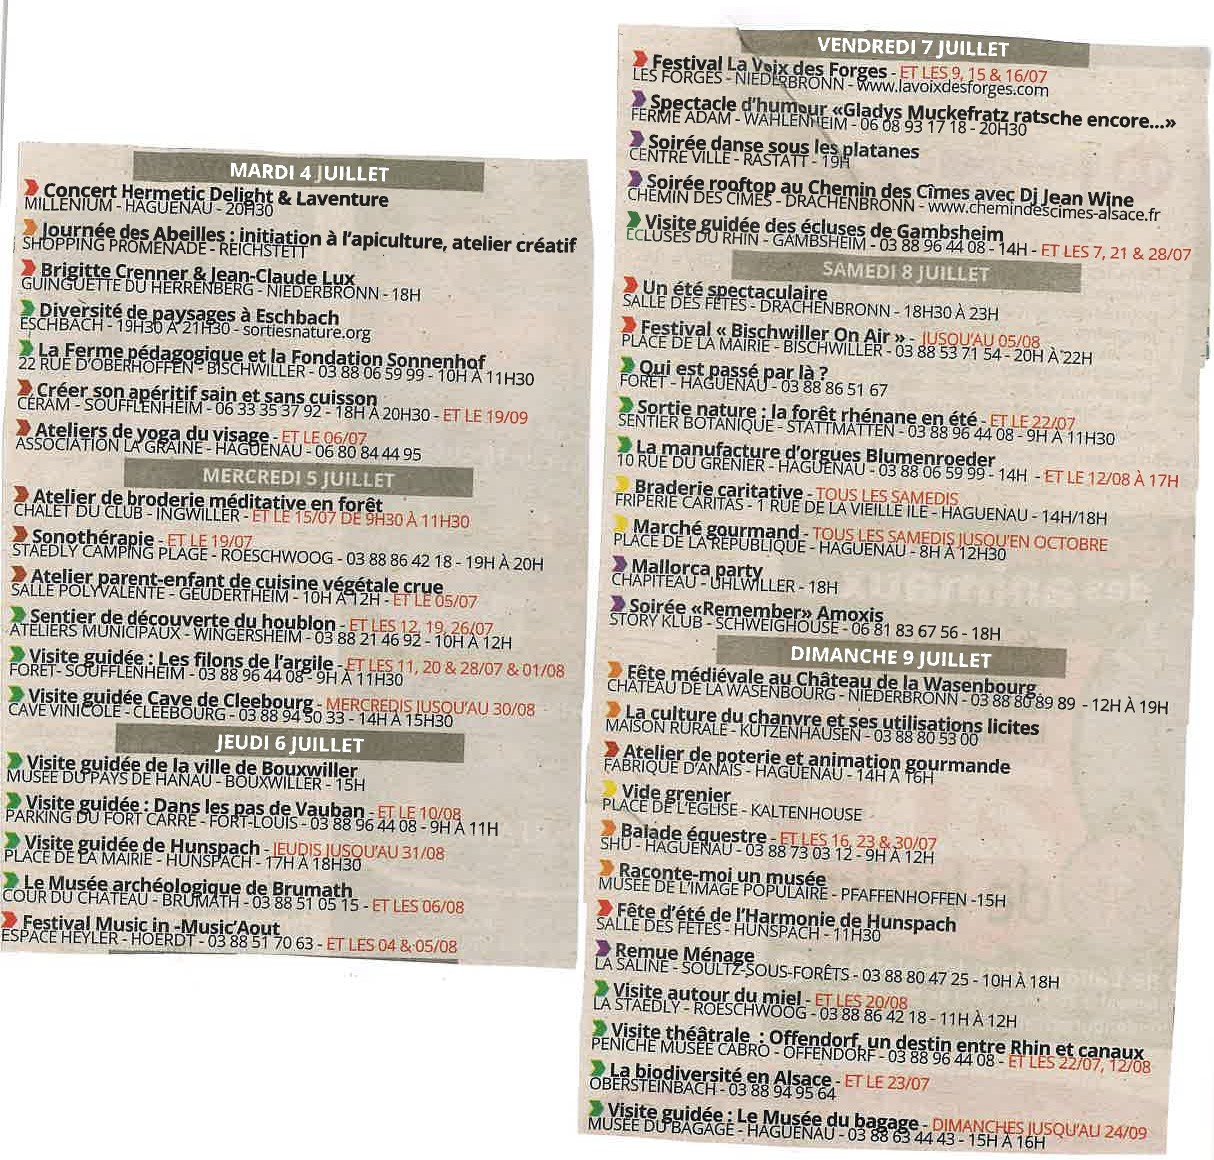 MARDI 4 JUILLET
Concert Hermetic Delight & Laventure
MILLENIUM - HAGUENAU - 20H30
Journée des Abeilles : initiation à l'apiculture, atelier créatif
SHOPPING PROMENADE - REICHSTETT
Brigitte Crenner & Jean-Claude Lux
GUINGUETTE DU HERRENBERG - NIEDERBRONN - 18H
Diversité de paysages à Eschbach
ESCHBACH - 19H30 À 21H30 - sortiesnature.org
La Ferme pédagogique et la Fondation Sonnenhof
22 RUE D'OBERHOFFEN - BISCHWILLER - 03 88 06 59 99 - 10H À 11H30
Créer son apéritif sain et sans cuisson
CÉRAM - SOUFFLENHEIM - 06 33 35 37 92 - 18H À 20H30 - ET LE 19/09
Ateliers de yoga du visage - ET LE 06/07
ASSOCIATION LA GRAINE - HAGUENAU - 06 80 84 44 95
MERCREDI 5 JUILLET
Atelier de broderie méditative en forêt
CHALET DU CLUB - INGWILLER - ET LE 15/07 DE 9H30 À 11H30
Sonothérapie - ET LE 19/07
STAEDLY CAMPING PLAGE - ROESCHWOOG - 03 88 86 42 18 - 19H À 20H
Atelier parent-enfant de cuisine végétale crue
SALLE POLYVALENTE - GEUDERTHEIM - 10H À 12H - ET LE 05/07
Sentier de découverte du houblon - ET LES 12, 19, 26/07
ATELIERS MUNICIPAUX - WINGERSHEIM - 03 88 21 46 92 - 10H À 12H
Visite guidée : Les filons de l'argile - ET LES 11, 20 & 28/07 & 01/08
FORÊT- SOUFFLENHEIM - 03 88 96 44 08 - 9H À 11H30
Visite guidée Cave de Cleebourg - MERCREDIS JUSQU'AU 30/08
CAVE VINICOLE - CLEEBOURG - 03 88 94 50 33 - 14H À 15H30
JEUDI 6 JUILLET
Visite guidée de la ville de Bouxwiller
MUSÉE DU PAYS DE HANAU - BOUXWILLER - 15H
Visite guidée : Dans les pas de Vauban - ET LE 10/08
PARKING DU FORT CARRÉ - FORT-LOUIS - 03 88 96 44 08 - 9H À 11H
Visite guidée de Hunspach - JEUDIS JUSQU'AU 31/08
PLACE DE LA MAIRIE - HUNSPACH - 17H À 18H30
Le Musée archéologique de Brumath
COUR DU CHÂTEAU - BRUMATH - 03 88 51 05 15 - ET LES 06/08
Festival Music in -Music'Aout
ESPACE HEYLER - HOERDT - 03 88 51 70 63 - ET LES 04 & 05/08
VENDREDI 7 JUILLET
Festival La Voix des Forges - ET LES 9, 15 & 16/07
LES FORGES - NIEDERBRONN - www.lavoixdesforges.com
Spectacle d'humour «Gladys Muckefratz ratsche encore...»
FERME ADAM - WAHLENHEIM - 06 08 93 17 18 - 20H30
Soirée danse sous les platanes
CENTRE VILLE - RASTATT - 19H
Soirée rooftop au Chemin des Cîmes avec Dj Jean Wine
CHEMIN DES CIMES - DRACHENBRONN - www.chemindescimes-alsace.fr
Visite guidée des écluses de Gambsheim
ÉCLUSES DU RHIN - GAMBSHEIM - 03 88 96 44 08 - 14H - ET LES 7, 21 & 28/07
SAMEDI 8 JUILLET
Un été spectaculaire
SALLE DES FÊTES - DRACHENBRONN - 18H30 À 23H
Festival « Bischwiller On Air » - JUSQU'AU 05/08
PLACE DE LA MAIRIE - BISCHWILLER - 03 88 53 71 54 - 20H À 22H
Qui est passé par là ?
FORÊT - HAGUENAU - 03 88 86 51 67
Sortie nature : la forêt rhénane en été - ET LE 22/07
SENTIER BOTANIQUE - STATTMATTEN - 03 88 96 44 08 - 9H À 11H30
La manufacture d'orgues Blumenroeder
10 RUE DU GRENIER - HAGUENAU - 03 88 06 59 99 - 14H - ET LE 12/08 À 17H
Braderie caritative - TOUS LES SAMEDIS
FRIPERIE CARITAS - 1 RUE DE LA VIEILLE ILE - HAGUENAU - 14H/18H
Marché gourmand - TOUS LES SAMEDIS JUSQU'EN OCTOBRE
PLACE DE LA RÉPUBLIQUE - HAGUENAU - 8H À 12H30
Mallorca party
CHAPITEAU - UHLWILLER - 18H
Soirée «Remember» Amoxis
STORY KLUB - SCHWEIGHOUSE - 06 81 83 67 56 - 18H
DIMANCHE 9 JUILLET
Fête médiévale au Château de la Wasenbourg
CHÂTEAU DE LA WASENBOURG - NIEDERBRONN - 03 88 80 89 89 - 12H À 19H
La culture du chanvre et ses utilisations licites
MAISON RURALE - KUTZENHAUSEN - 03 88 80 53 00
Atelier de poterie et animation gourmande
FABRIQUE D'ANAÏS - HAGUENAU - 14H À 16H
Vide grenier
PLACE DE L'ÉGLISE - KALTENHOUSE
Balade équestre - ET LES 16, 23 & 30/07
SHU - HAGUENAU - 03 88 73 03 12 - 9H À 12H
Raconte-moi un musée
MUSÉE DE L'IMAGE POPULAIRE - PFAFFENHOFFEN -15H
Fête d'été de l'Harmonie de Hunspach
SALLE DES FÊTES - HUNSPACH - 11H30
Remue Ménage
LA SALINE - SOULTZ-SOUS-FORÊTS - 03 88 80 47 25 - 10H À 18H
Visite autour du miel - ET LES 20/08
LA STAEDLY - ROESCHWOOG - 03 88 86 42 18 - 11H À 12H
Visite théâtrale : Offendorf, un destin entre Rhin et canaux
PÉNICHE MUSÉE CABRO - OFFENDORF - 03 88 96 44 08 - ET LES 22/07, 12/08
La biodiversité en Alsace - ET LE 23/07
OBERSTEINBACH - 03 88 94 95 64
Visite guidée : Le Musée du bagage - DIMANCHES JUSQU'AU 24/09
MUSÉE DU BAGAGE - HAGUENAU - 03 88 63 44 43 - 15H À 16H